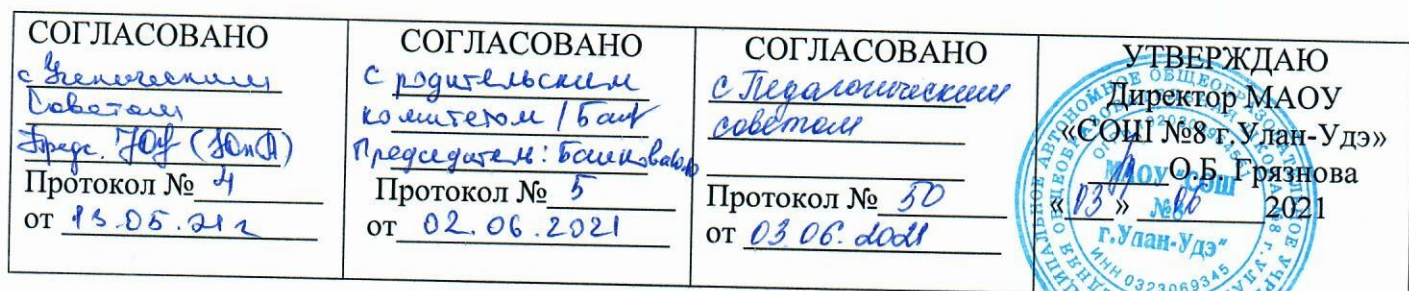 СОГЛАСОВАНО
с Ученическим
Советом
Предс.
Протокол № 4
от 13.05.21г
СОГЛАСОВАНО
с родительским
комитетом /
Председатель:
Протокол № 5
от 02.06.2021
СОГЛАСОВАНО
с Педагогическим
советом
Протокол № 50
от 03.06.2021
УТВЕРЖДАЮ
Директор МАОУ
«СОШ №8 г.Улан-Удэ»
О.Б. Грязнова
«03» 06 2021
МАОУ "СОШ
№8
г.Улан-Удэ"
ИНН 0323069345